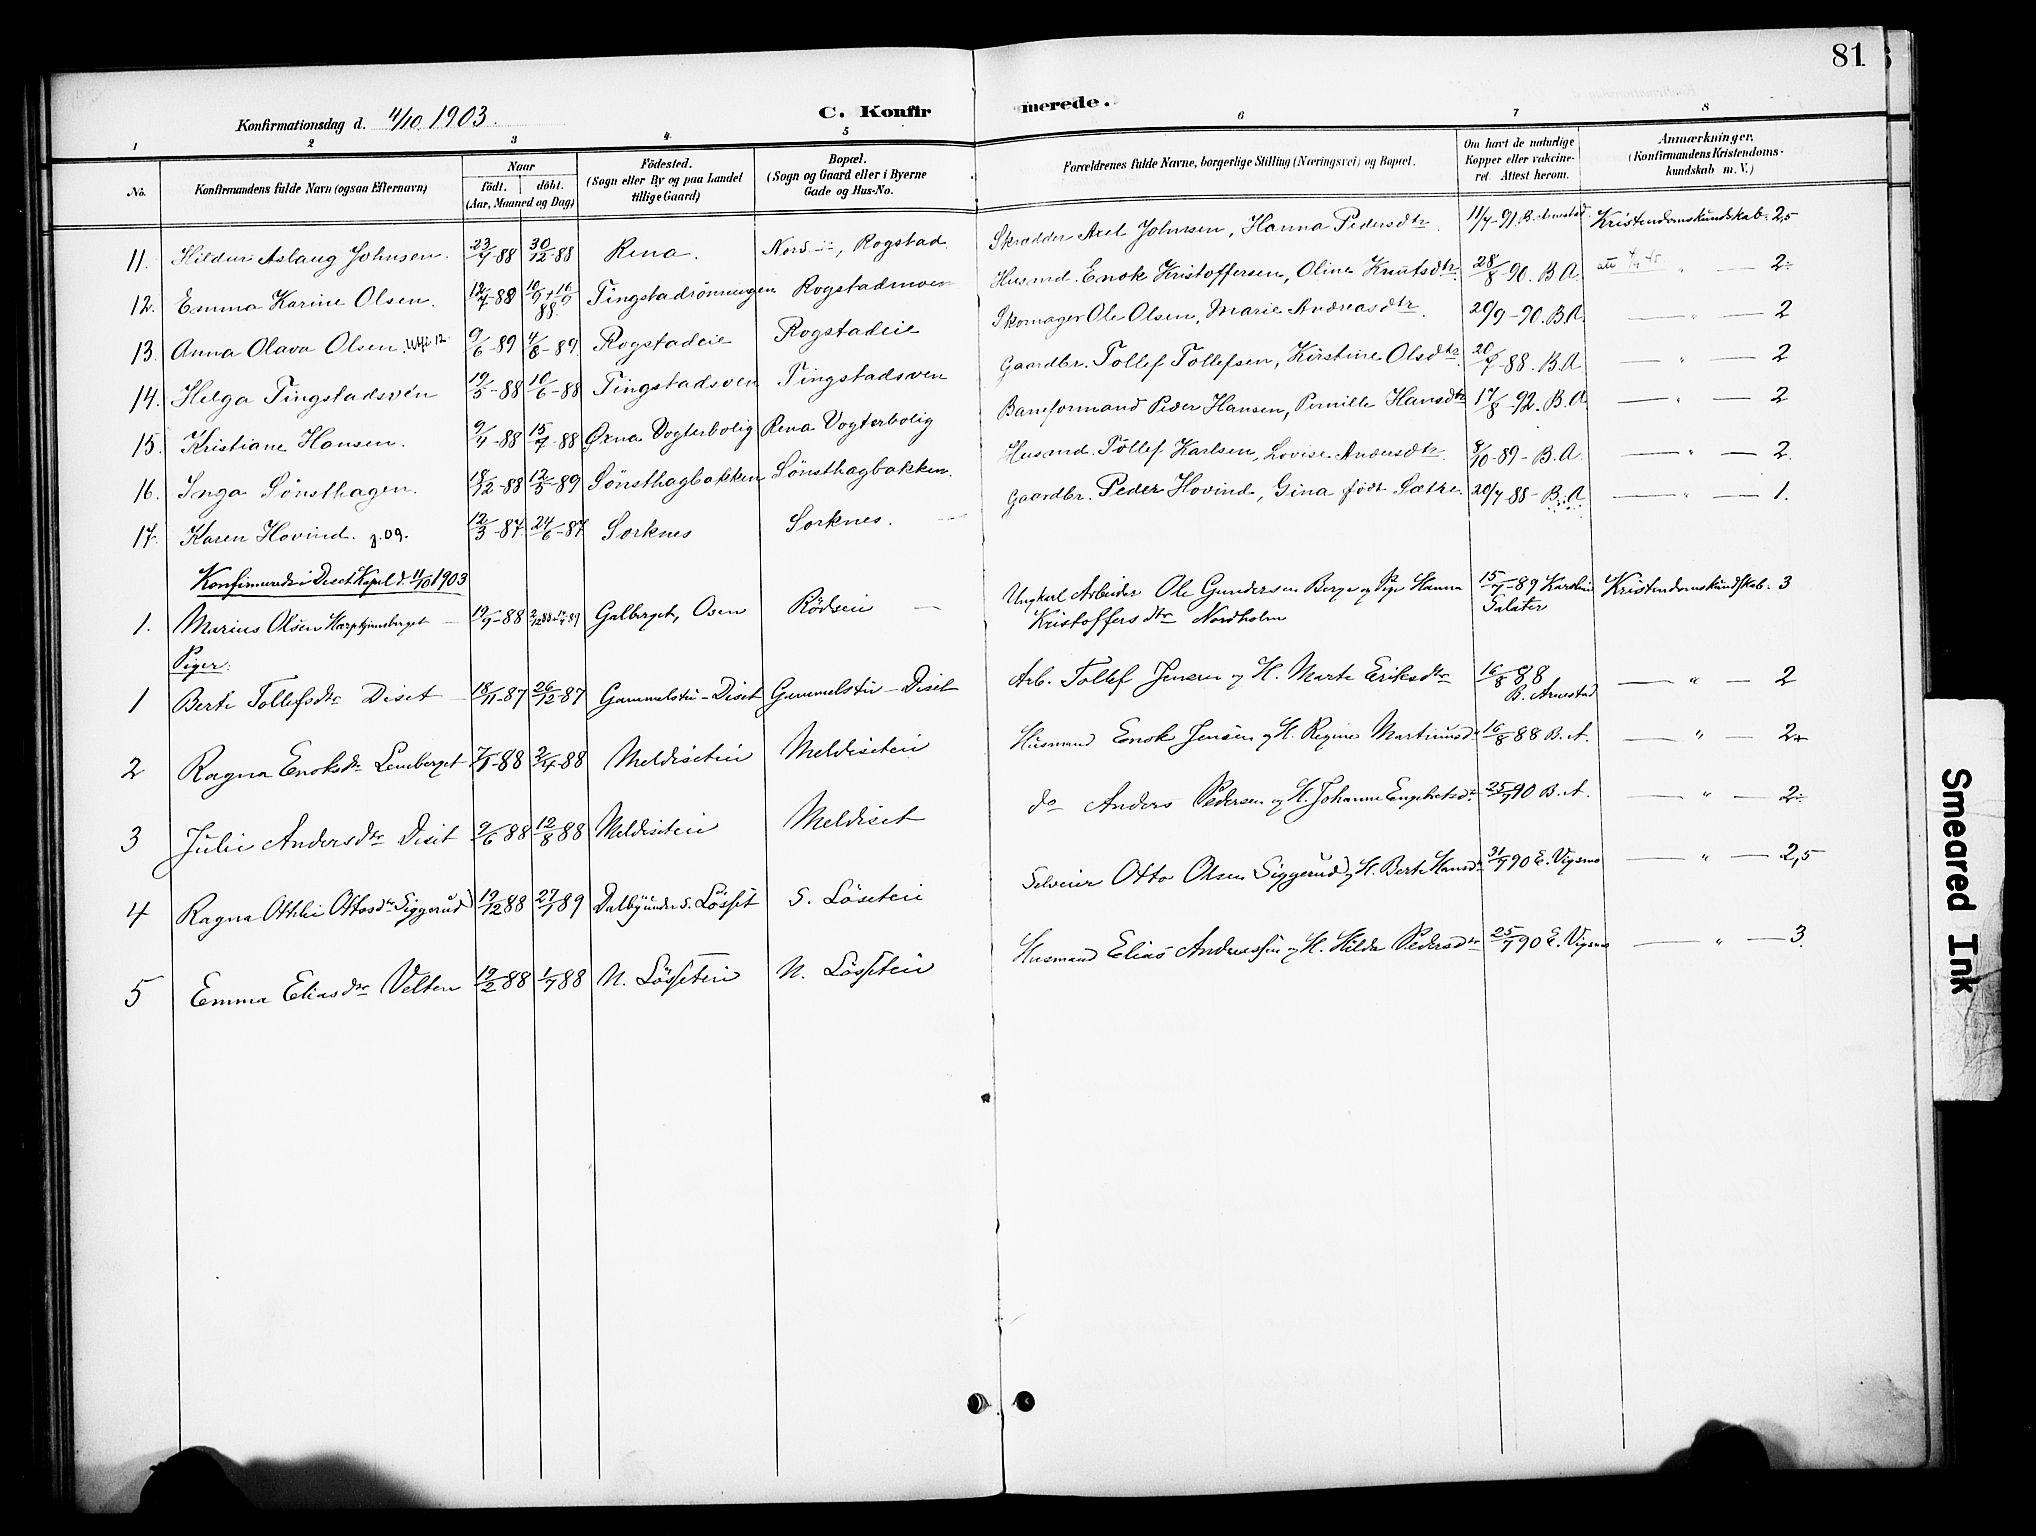 81
Konfirmationsdag d. 4/10 1903.
C. Konfirmerede.
1 2 3 4 5 6 7 8
No.
Konfirmandens fulde Navn (ogsaa Efternavn)
Naar
født. døbt.
(Aar, Maaned og Dag)
Fødested.
(Sogn eller By og paa Landet
tillige Gaard)
Bopæl.
(Sogn og Gaard eller i Byerne
Gade og Hus-No.
Forældrenes fulde Navne, borgerlige Stilling (Næringsvei) og Bopæl.
Om havt de naturlige
Kopper eller vakcine-
ret. Attest herom.
Anmærkninger.
(Konfirmandens Kristendoms-
kundskab m. V.)
11. Hildur Aslaug Johnsen. 30/12-88 Rena. Rogstad Skrædder Axel Johnsen, Hanna Pedersdtr. 11/7-91. B. Arnestad. Kristendomskundskab. 2,5
12. Emma Karine Olsen. 12/7-88 Tingstadrönningen Rogstadmoen Husmd. Enok Kristoffersen, Oline Knutsdtr. 28/8-90. B.A. — " — 2÷
13. Anna Olava Olsen. 9/6-89 4/8-89 Rogstadeie Rogstadeie Skomager Ole Olsen, Marie Andreasdtr. 20/9-90. B.A. — " — 2
14. Helga Tingstadsvén 19/5-88 10/6-88 Tingstadsven Tingstadsven Gaardbr. Tollef Tollefsen, Kirstine Olsdtr. B.A — " — 2
15. Kristiane Hansen. 9/4-88 15/7-88 Øxna Vogterbolig Rena Vogterbolig Baneformand Peder Hansen, Pernille Hansdtr. 17/8-92. B.A. — " — 2
16. Inga Sønsthagen. 18/12-88 12/5-89 Sønsthagbakken Sønsthagbakken. Husmd. Tollef Karlsen, Lovise Andersdtr. 8/10-89- B.A. — " — 2.
17. Karen Hovind. g. 09. 12/3-87 24/6-87 Sorknes Sorknes. Gaardbr. Peder Hovind, Gina født Sætre. 20/7-88- B.A. — " — 1.
Konfirmerede i Diset Kapel d. 11/10 1903
1. Marius Olsen 19/9-88 Galberget, Osen Rödseie Ungkarl Arbeider Ole Gundersen Berge og Pige Hanna 15/7-89 Karoline Kristendomskundskab. 3
Kristoffersdtr Nordholm
Piger:
1 Berte Tollefsdtr Diset 18/11-87 26/12-87 Gammelstu-Diset Gammelstu-Diset Arb. Tollef Jensen og H. Marte Eriksdtr 16/8 88 — " — 2
B. Arnestad
2 Ragna Enoksdtr Lemberget Meldiseteie Meldiseteie Husmand Enok Jensen og H. Regine Martinusd. 16/8 88 B.A. — " — 2÷
3 Julie Andersdtr Diset 9/6 88 12/8 88 Meldiseteie Meldiset do Anders Pedersen og H. Johanne Engebretsdtr 25/7 90 B.A. — " — 2÷
4 Ragna Othlie Ottosdtr Siggerud 19/12 88 27/1 89 Dalby under S. Lösset S. Löseteie Selveier Otto Olsen Siggerud og H. Berte Hansdtr 31/7 90 E. Vigsmo — " — 2,5
5 Emma Eliasdtr Velten 19/2 88 1/7 88 N. Lösseteie N. Lösseteie Husmand Elias Andreassen og H. Hilda Pedersdtr 25/7 90 E. Vigsmo — " — 3.
Smeared Ink